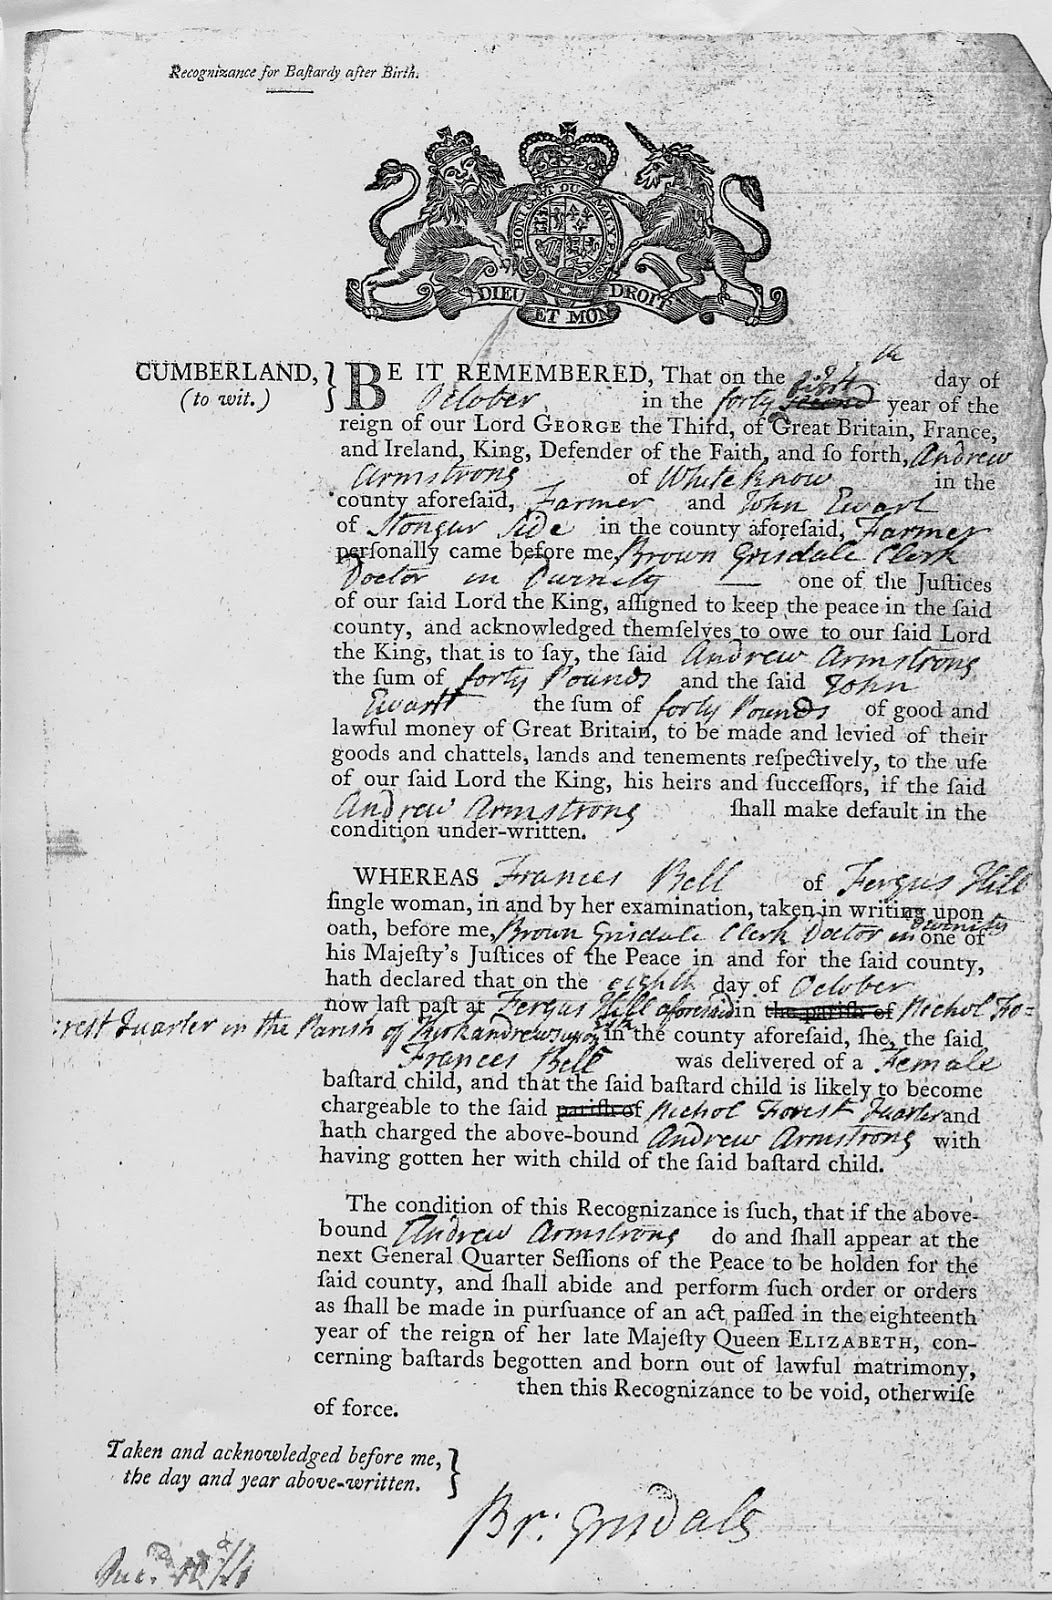 Recognizance for Baſtardy after Birth.
HONI SOIT QUI MAL Y PENSE
DIEU ET MON DROIT
CUMBERLAND, } BE IT REMEMBERED, That on the day of
(to wit.) October in the forty second year of the
reign of our Lord GEORGE the Third, of Great Britain, France,
and Ireland, King, Defender of the Faith, and ſo forth, Andrew
Armstrong of Whiteknow in the
county aforeſaid, Farmer and John Ewart
of Stongur Side in the county aforeſaid, Farmer
perſonally came before me, Brown Grisdale Clerk
Doctor in Divinity — one of the Juſtices
of our ſaid Lord the King, aſſigned to keep the peace in the ſaid
county, and acknowledged themſelves to owe to our ſaid Lord
the King, that is to ſay, the ſaid Andrew Armstrong
the ſum of forty Pounds and the ſaid John
Ewart the ſum of forty Pounds of good and
lawful money of Great Britain, to be made and levied of their
goods and chattels, lands and tenements reſpectively, to the uſe
of our ſaid Lord the King, his heirs and ſucceſſors, if the ſaid
Andrew Armstrong ſhall make default in the
condition under-written.
WHEREAS Frances Bell of Fergus Hill
ſingle woman, in and by her examination, taken in writing upon
oath, before me, Brown Grisdale Clerk Doctor in Divinity one of
his Majeſty's Juſtices of the Peace in and for the ſaid county,
hath declared that on the eighth day of October
now laſt paſt at Fergus Hill aforesaid in the parish of Nichol Fo=
rest Quarter in the Parish of Kirkandrews upon Esk in the county aforeſaid, ſhe, the ſaid
Frances Bell was delivered of a Female
baſtard child, and that the ſaid baſtard child is likely to become
chargeable to the ſaid pariſh of Nichol Forest Quarter and
hath charged the above-bound Andrew Armstrong with
having gotten her with child of the ſaid baſtard child.
The condition of this Recognizance is ſuch, that if the above-
bound Andrew Armstrong do and ſhall appear at the
next General Quarter Seſſions of the Peace to be holden for the
ſaid county, and ſhall abide and perform ſuch order or orders
as ſhall be made in purſuance of an act paſſed in the eighteenth
year of the reign of her late Majeſty Queen ELIZABETH, con-
cerning baſtards begotten and born out of lawful matrimony,
then this Recognizance to be void, otherwiſe
of force.
Taken and acknowledged before me, }
the day and year above-written.
Br: Grisdale